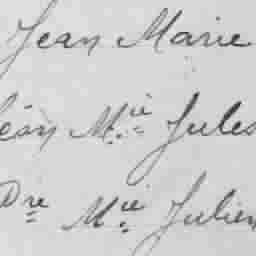 Jean Marie
Léon M.ie Jules
P.re M.ie Julien